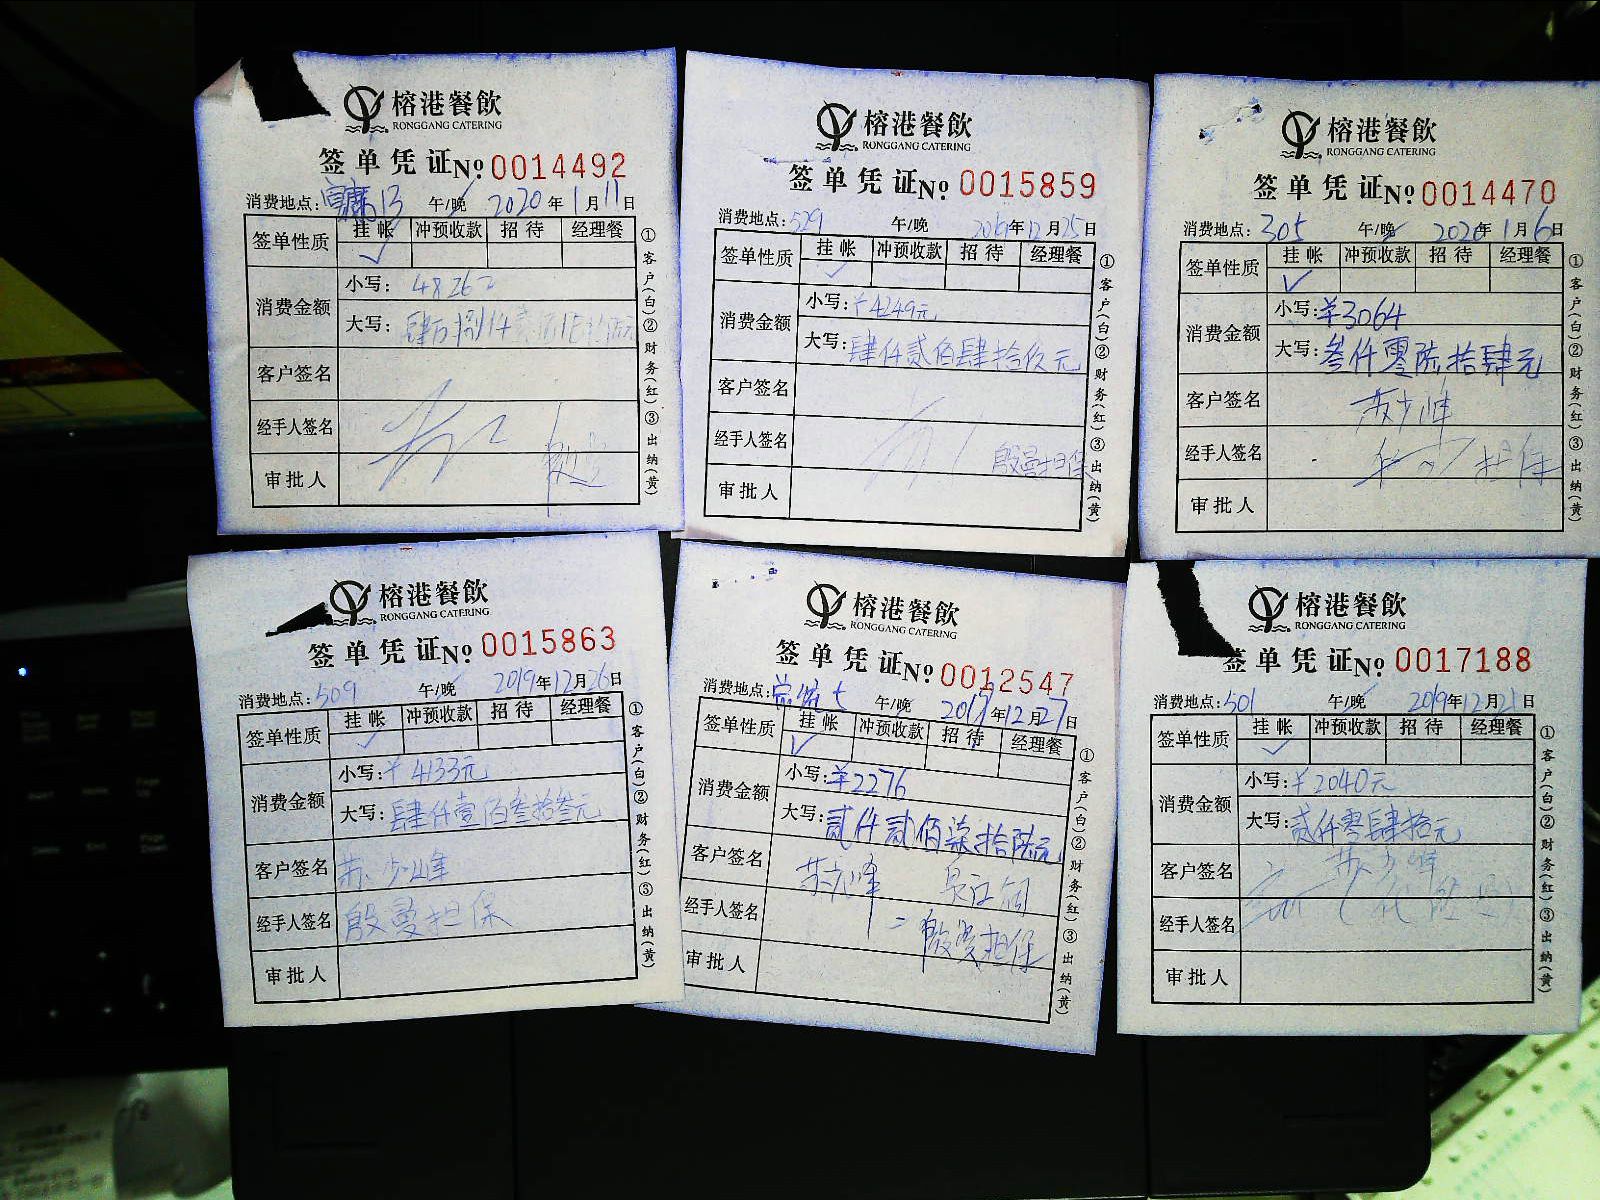 榕港餐飲
RONGGANG CATERING
签单凭证№0014492
消费地点: 13 午/晚 2020年1月11日
签单性质 挂帐 冲预收款 招待 经理餐
✓
消费金额 小写: 4826
大写: 肆
客户签名
经手人签名
审批人
①客户(白)②财务(红)③出纳(黄)
榕港餐飲
RONGGANG CATERING
签单凭证№0015859
消费地点:529 午/晚 12月25日
签单性质 挂帐 冲预收款 招待 经理餐
✓
消费金额 小写:¥4249元
大写:肆仟贰佰肆拾玖元
客户签名
经手人签名 殷曼担保
审批人
①客户(白)②财务(红)③出纳(黄)
榕港餐飲
RONGGANG CATERING
签单凭证№0014470
消费地点:305 午/晚 2020年1月6日
签单性质 挂帐 冲预收款 招待 经理餐
✓
消费金额 小写:¥3064
大写:叁仟零陆拾肆元
客户签名 苏少峰
经手人签名 担保
审批人
①客户(白)②财务(红)③出纳(黄)
榕港餐飲
RONGGANG CATERING
签单凭证№0015863
消费地点:509 午/晚 2019年12月26日
签单性质 挂帐 冲预收款 招待 经理餐
✓
消费金额 小写:¥4133元
大写:肆仟壹佰叁拾叁元
客户签名 苏少峰
经手人签名 殷曼担保
审批人
①客户(白)②财务(红)③出纳(黄)
榕港餐飲
RONGGANG CATERING
签单凭证№0012547
消费地点: 午/晚 2019年12月27日
签单性质 挂帐 冲预收款 招待 经理餐
✓
消费金额 小写:¥2276
大写:贰仟贰佰柒拾陆元
客户签名 苏少峰
经手人签名 殷曼担保
审批人
①客户(白)②财务(红)③出纳(黄)
榕港餐飲
RONGGANG CATERING
签单凭证№0017188
消费地点:501 午/晚 2019年12月21日
签单性质 挂帐 冲预收款 招待 经理餐
✓
消费金额 小写:¥2040元
大写:贰仟零肆拾元
客户签名 苏少峰
经手人签名
审批人
①客户(白)②财务(红)③出纳(黄)